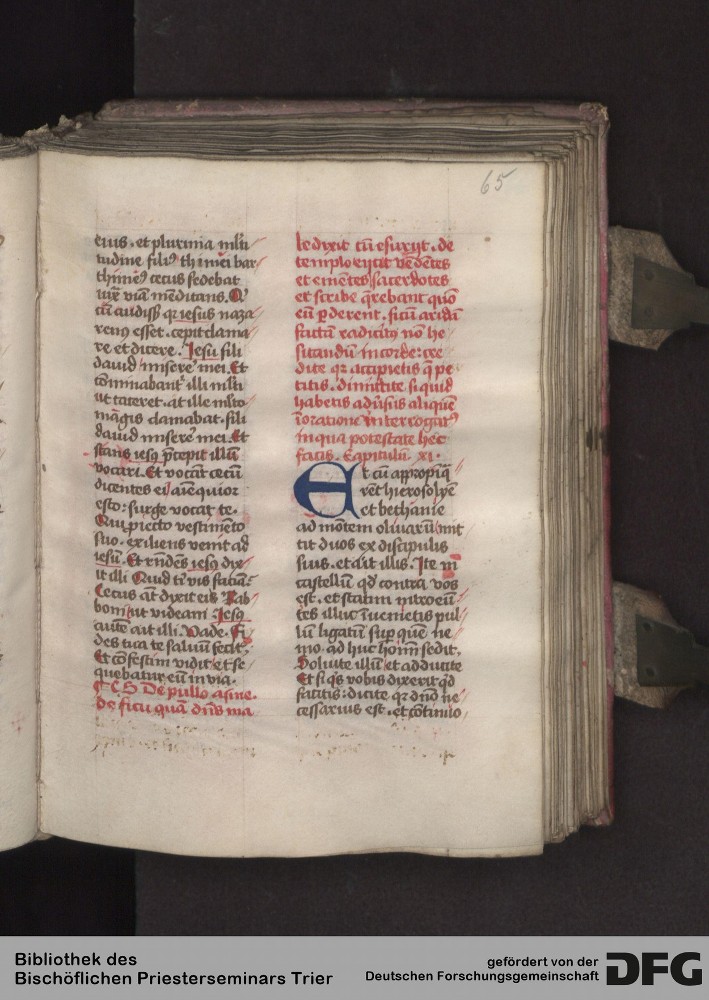 65
eius . et plurima mlti
tudine filiꝰ thimei bar
thimeꝰ cecus sedebat
iux̄ viā mēdicans. Q
cū audiss̄ qꝛ iesus naza
renꝰ esset . cepit clama
re et dicere . Iesu fili
dauid miserē mei. Et
cōminabant̉ illi mlti
ut taceret . at ille mlto
magis clamabat . fili
dauid miserē mei. Et
stans iesꝰ p̄cepit illū
vocari. Et vocāt cecū
dicentes ei aīequior
esto : surge vocat te .
Qui piecto vestimēto
suo . exiliens venit ad
iesū. Et rn̄dēs iesꝰ dix
it illi Quid ti vis faciā :
Cecus aūt dixit ei Rab
boni ut videam Iesꝰ
autē ait illi. Vade . Fi
des tua te saluū fecit.
Et cōfestim vidit et se
quebatur eū in via .
De pullo asine .
de ficu quā dn̄s ma
ledixit cū esuriit . de
templo eiicit vēdētes
et emētes sacerdotes
et scribe q̄rebant quō
eū ꝑderent . ficū aridā
factā radicitꝰ nō he
sitandū in corde : cre
dite qꝛ accipietis q̄ pe
titis . dimittite si quid
habetis adūsus aliquē
ī oratione interrogatꝰ
in qua potestate hec
facis . Capitulū . xi .
Et cū appropīq̄
rēt hierosolymē
et bethanie
ad mōtem oliuarū mit
tit duos ex discipulis
suis . et ait illis . Ite in
castellū qd̄ contra vos
est . et statim introeū
tes illuc inuenietis pul
lū ligatū sup̄ quē ne
mo . ad huc homī sedit .
Soluite illū et adducite
Et si q̄s vobis dixerit q̄d
facitis : dicite qꝛ dn̄o ne
cessarius est . et cōtinuo
Bibliothek des
Bischöflichen Priesterseminars Trier
gefördert von der
Deutschen Forschungsgemeinschaft
DFG